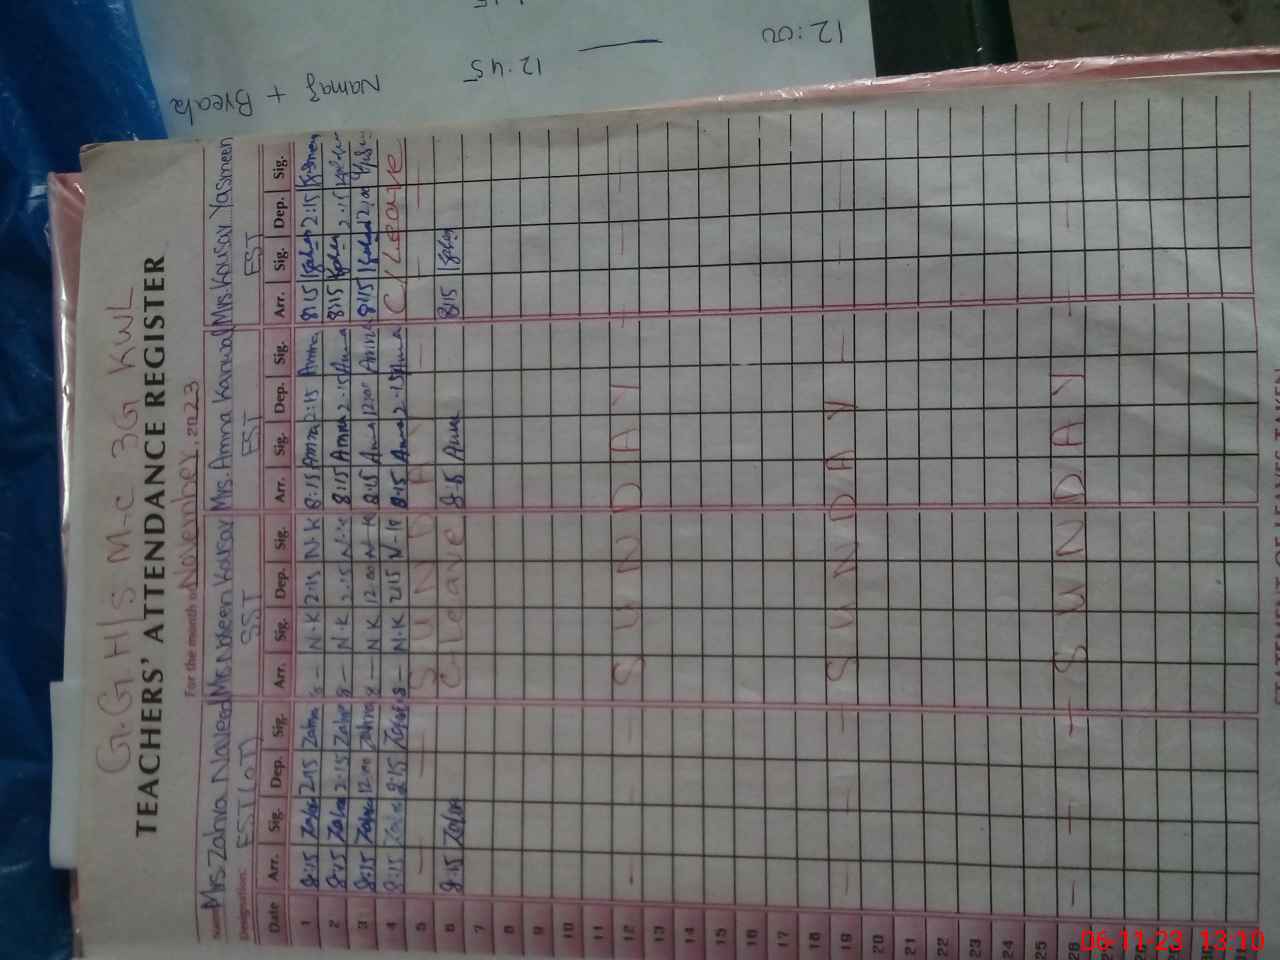 G.G.H/S M-C 3G KWL
TEACHERS' ATTENDANCE REGISTER
For the month of November, 2023
Name Mrs. Zahra Naveed Mrs. Noreen Kausar Mrs. Amna Kanwal Mrs. Kausar Yasmeen
Designation: EST SST EST EST
Date Arr. Sig. Dep. Sig. Arr. Sig. Dep. Sig. Arr. Sig. Dep. Sig. Arr. Sig. Dep. Sig.
1 8:15 Zahra 2:15 Zahra 8 — N.K 2:15 N.K 8:15 Amna 2:15 Amna 8:15 2:15
2 8:15 Zahra 2:15 Zahra 8 — N.K 2:15 N.K 8:15 Amna 2:15 Amna 8:15 2:15
3 8:15 Zahra 12:00 Zahra 8 — N.K 12:00 N.K 8:15 Amna 12:00 Amna 8:15 12:00
4 8:15 Zahra 2:15 Zahra 8 — N.K 2:15 N.K 8:15 Amna 2:15 Amna C/Leave
5 — — S U N D A Y — — —
6 8:15 Zahra C-leave 8:15 Amna 8:15
7
8
9
10
11
12 — — S U N D A Y — — —
13
14
15
16
17
18
19 — — — S U N D A Y — — —
20
21
22
23
24
25
26 — — — S U N D A Y — — —
27
28
29
30
31
STATEMENT OF LEAVES TAKEN
12:00
12:45
Namaz + Break
06-11-23 13:10